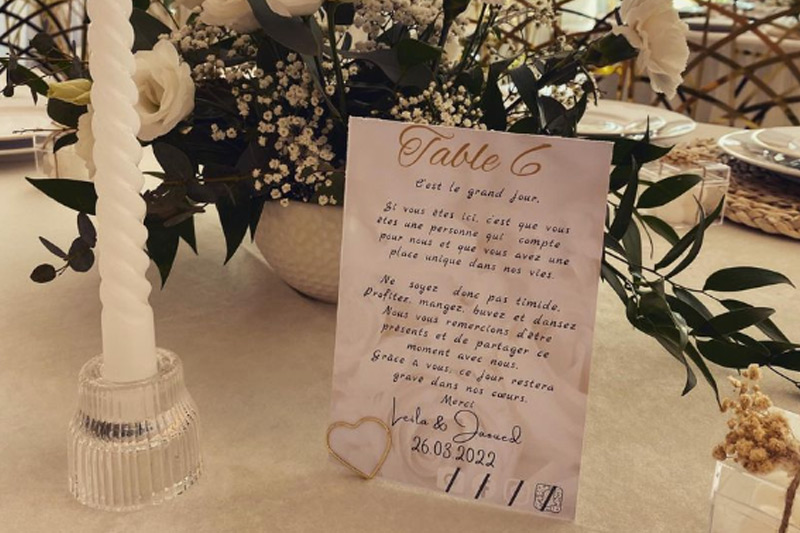 Table 6
C'est le grand jour.
Si vous êtes ici, c'est que vous
êtes une personne qui compte
pour nous et que vous avez une
place unique dans nos vies.
Ne soyez donc pas timide.
Profiter, mangez, buvez et dansez
Nous vous remercions d'être
présents et de partager ce
moment avec nous.
Grâce à vous, ce jour restera
gravé dans nos cœurs.
Merci
Leila & Jaoued
26.03.2022